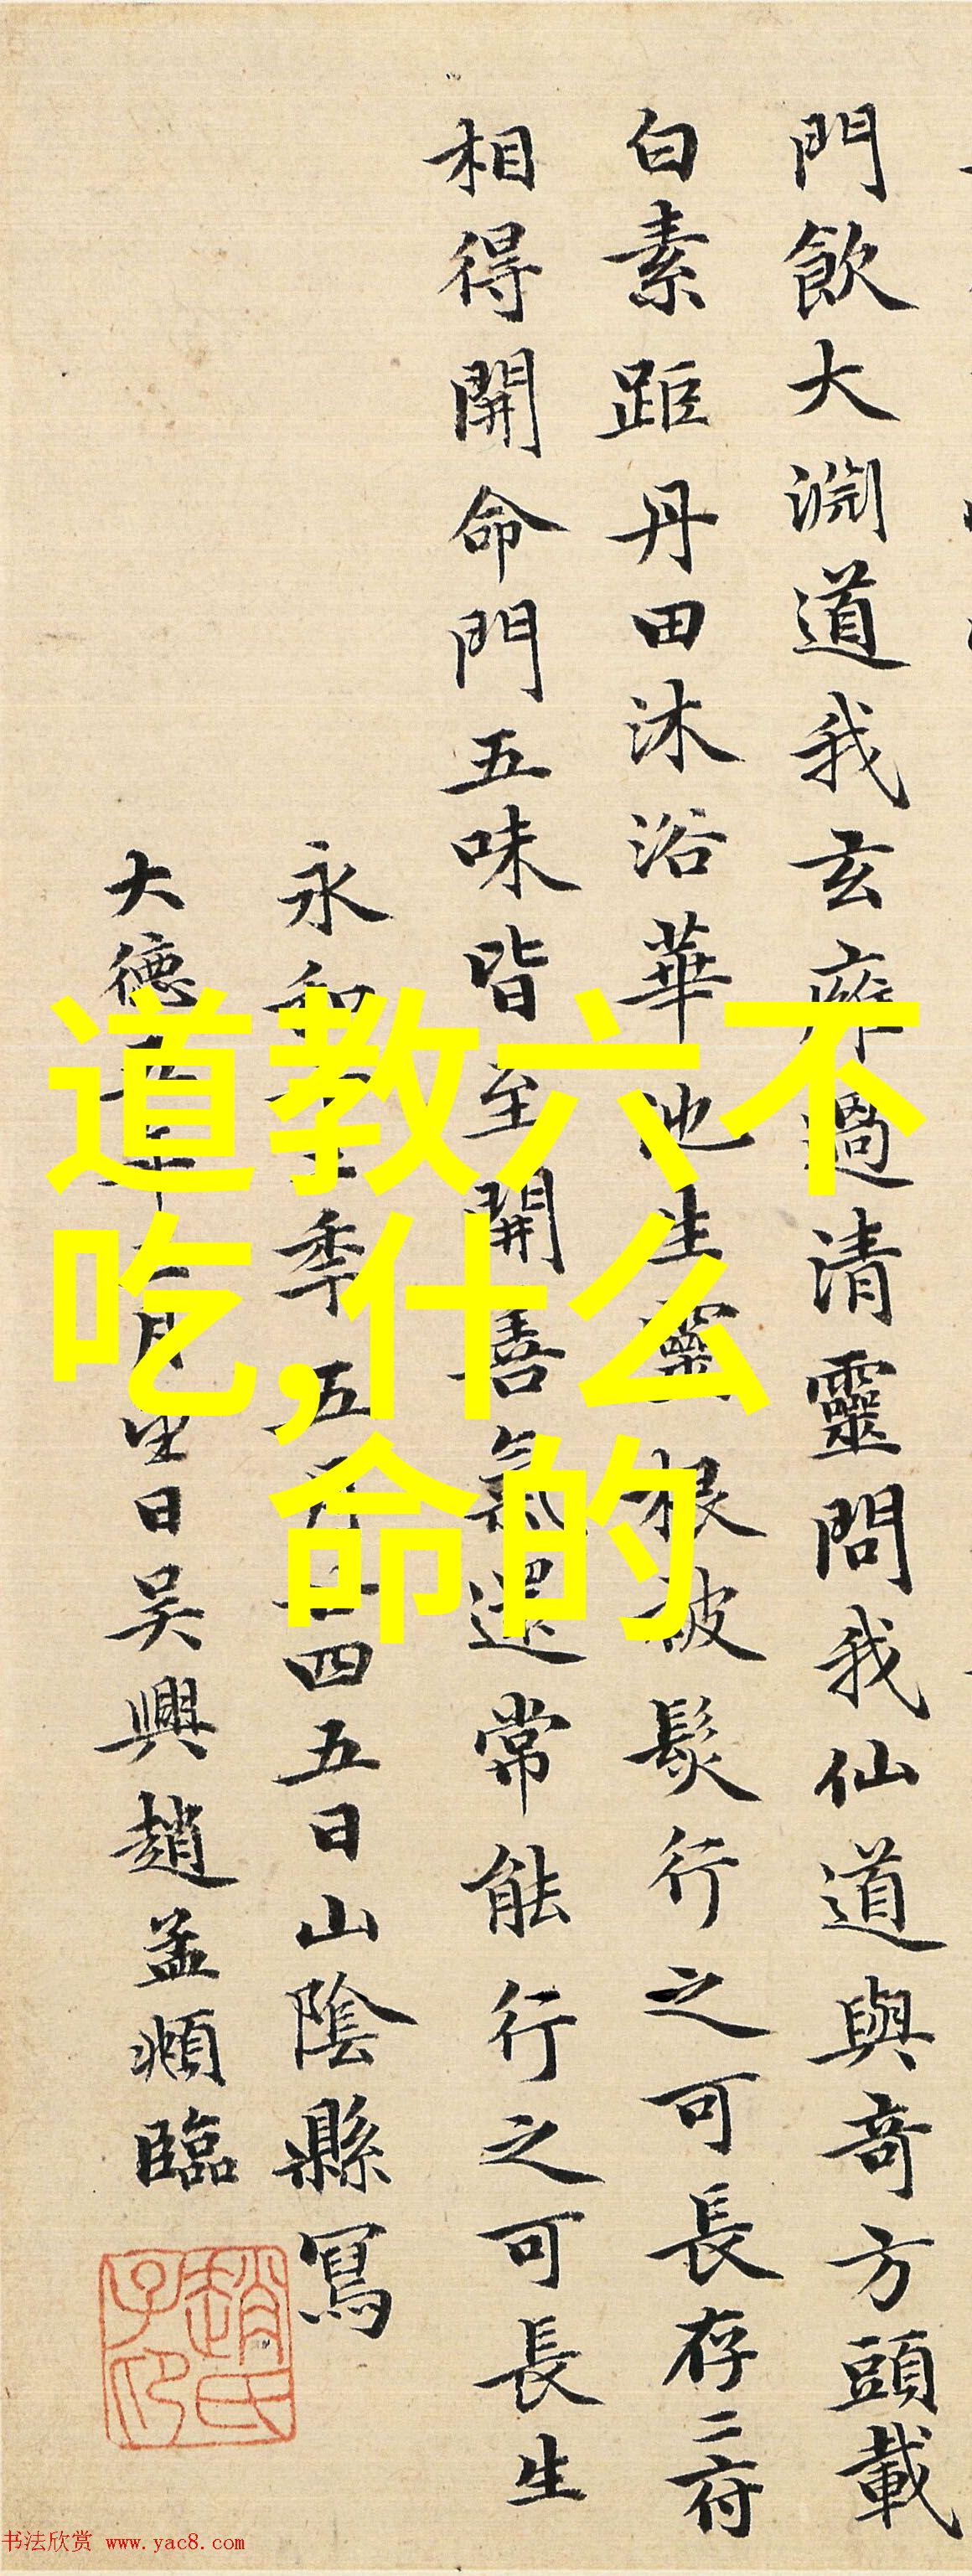 門飲大淵道我玄癕過清靈問我仙道與奇方頭載
白素距丹田沐浴華池生靈根被髮行之可長存二府
相得開命門五味皆至開善氣還常能行之可長生
永和十二季五月廿四五日山陰縣寫
大德 年 月 日吳興趙孟頫臨
趙氏子印
道教六不
吃,什么
命的
书法欣赏 www.yac8.com